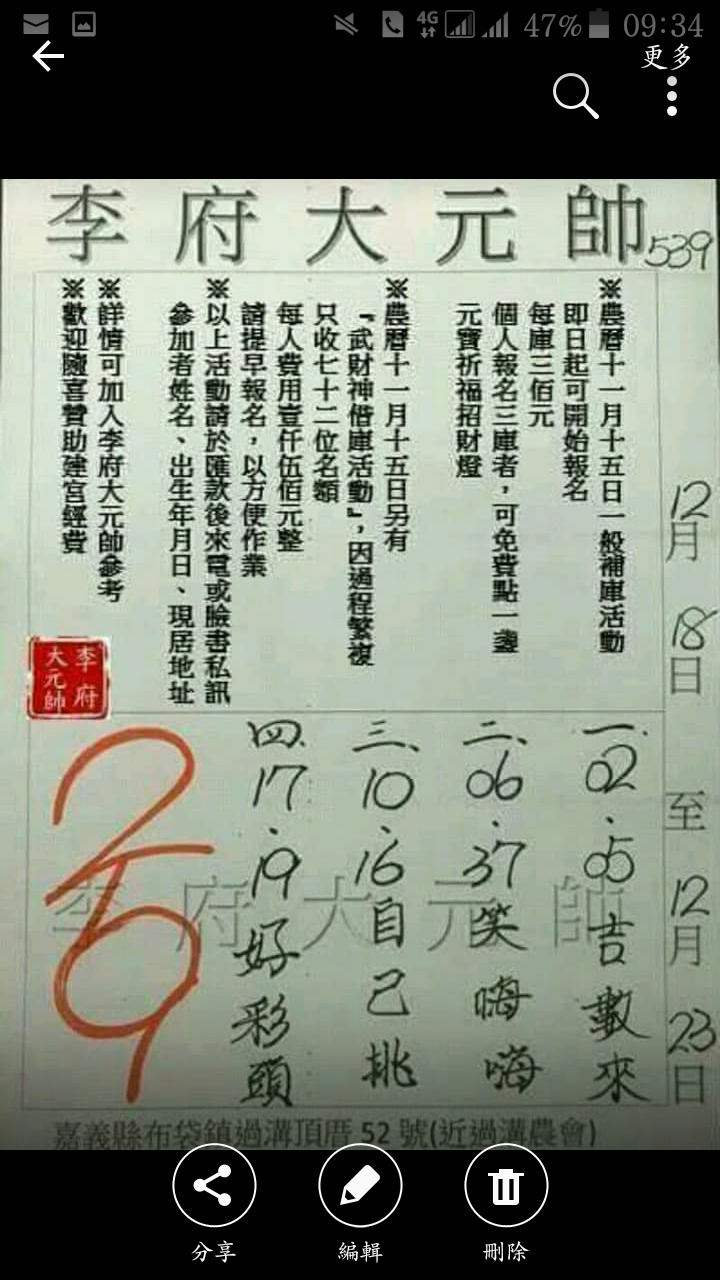 4G 47% 09:34
更多
李府大元帥 539
※農曆十一月十五日一般補庫活動
即日起可開始報名
每庫三佰元
個人報名三庫者，可免費點一盞
元寶祈福招財燈
※農曆十一月十五日另有
『武財神借庫活動』，因過程繁複
只收七十二位名額
每人費用壹仟伍佰元整
請提早報名，以方便作業
※以上活動請於匯款後來電或臉書私訊
參加者姓名、出生年月日、現居地址
※詳情可加入李府大元帥參考
※歡迎隨喜贊助建宮經費
李府
大元帥
12月18日至12月23日
一.02.05吉數來
二、06.37笑嗨嗨
三、10、16自己挑
四.17.19好彩頭
李府大元帥
嘉義縣布袋鎮過溝頂厝52號(近過溝農會)
分享
編輯
刪除